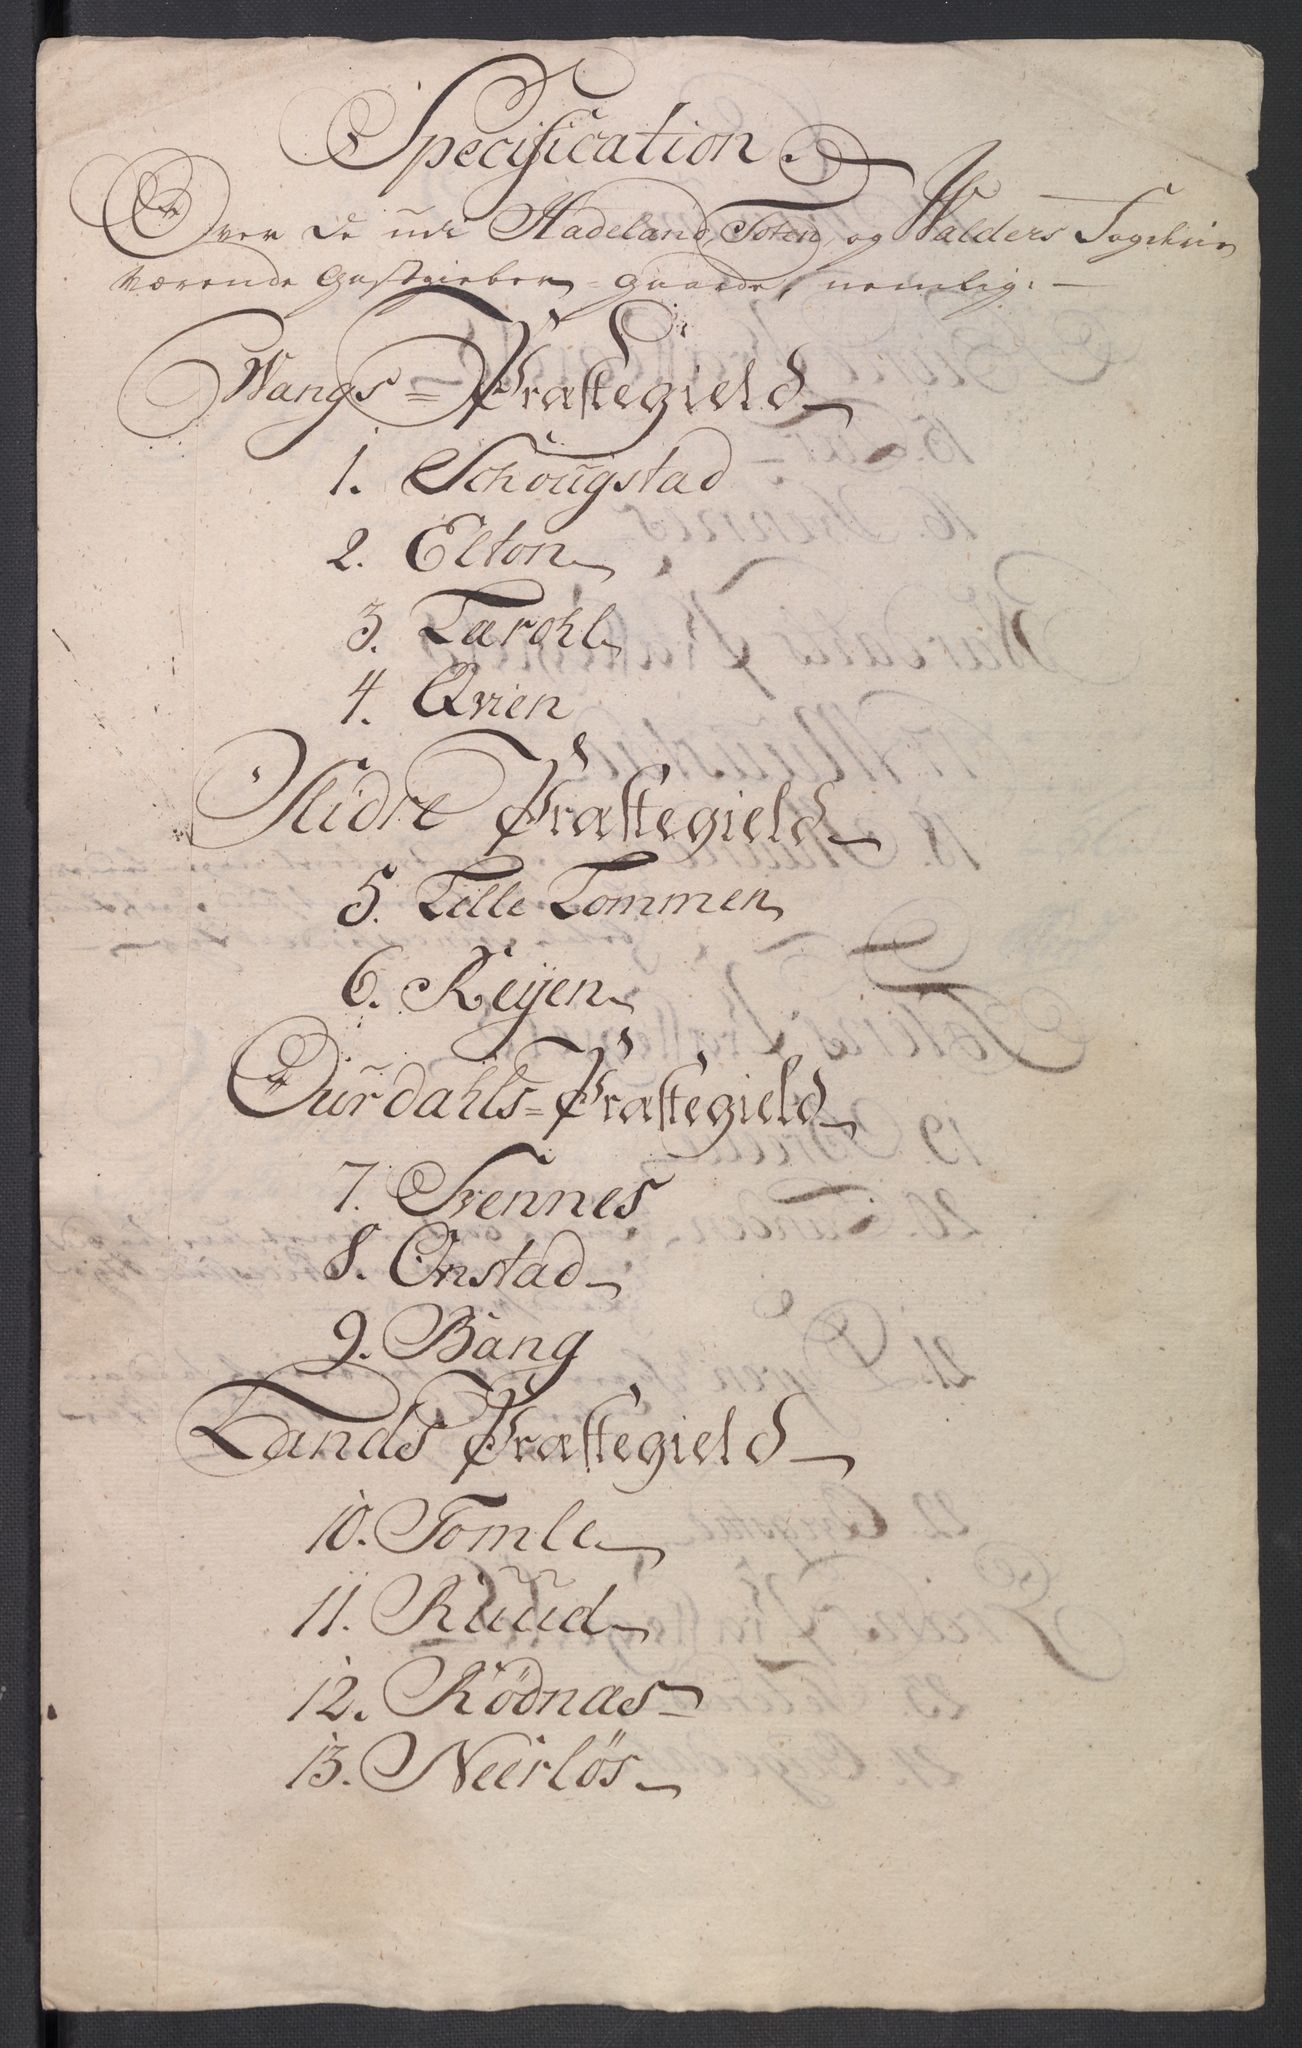 Specification
Over de udi Hadeland, Toten, og Walders Fogderie
værende Gastgieber-Gaarde, nemlig:
Wangs = Præstegield
1. Schougstad
2. Elton
3. Larohl
4. Qvien
Slidre Præstegield
5. Lille Lommen
6. Reijen
Ourdahls = Præstegield
7. Svennes
8. Onstad
9. Bang
Lands Præstegield
10. Tomle
11. Ruud
12. Rödnæs
13. Neerlös